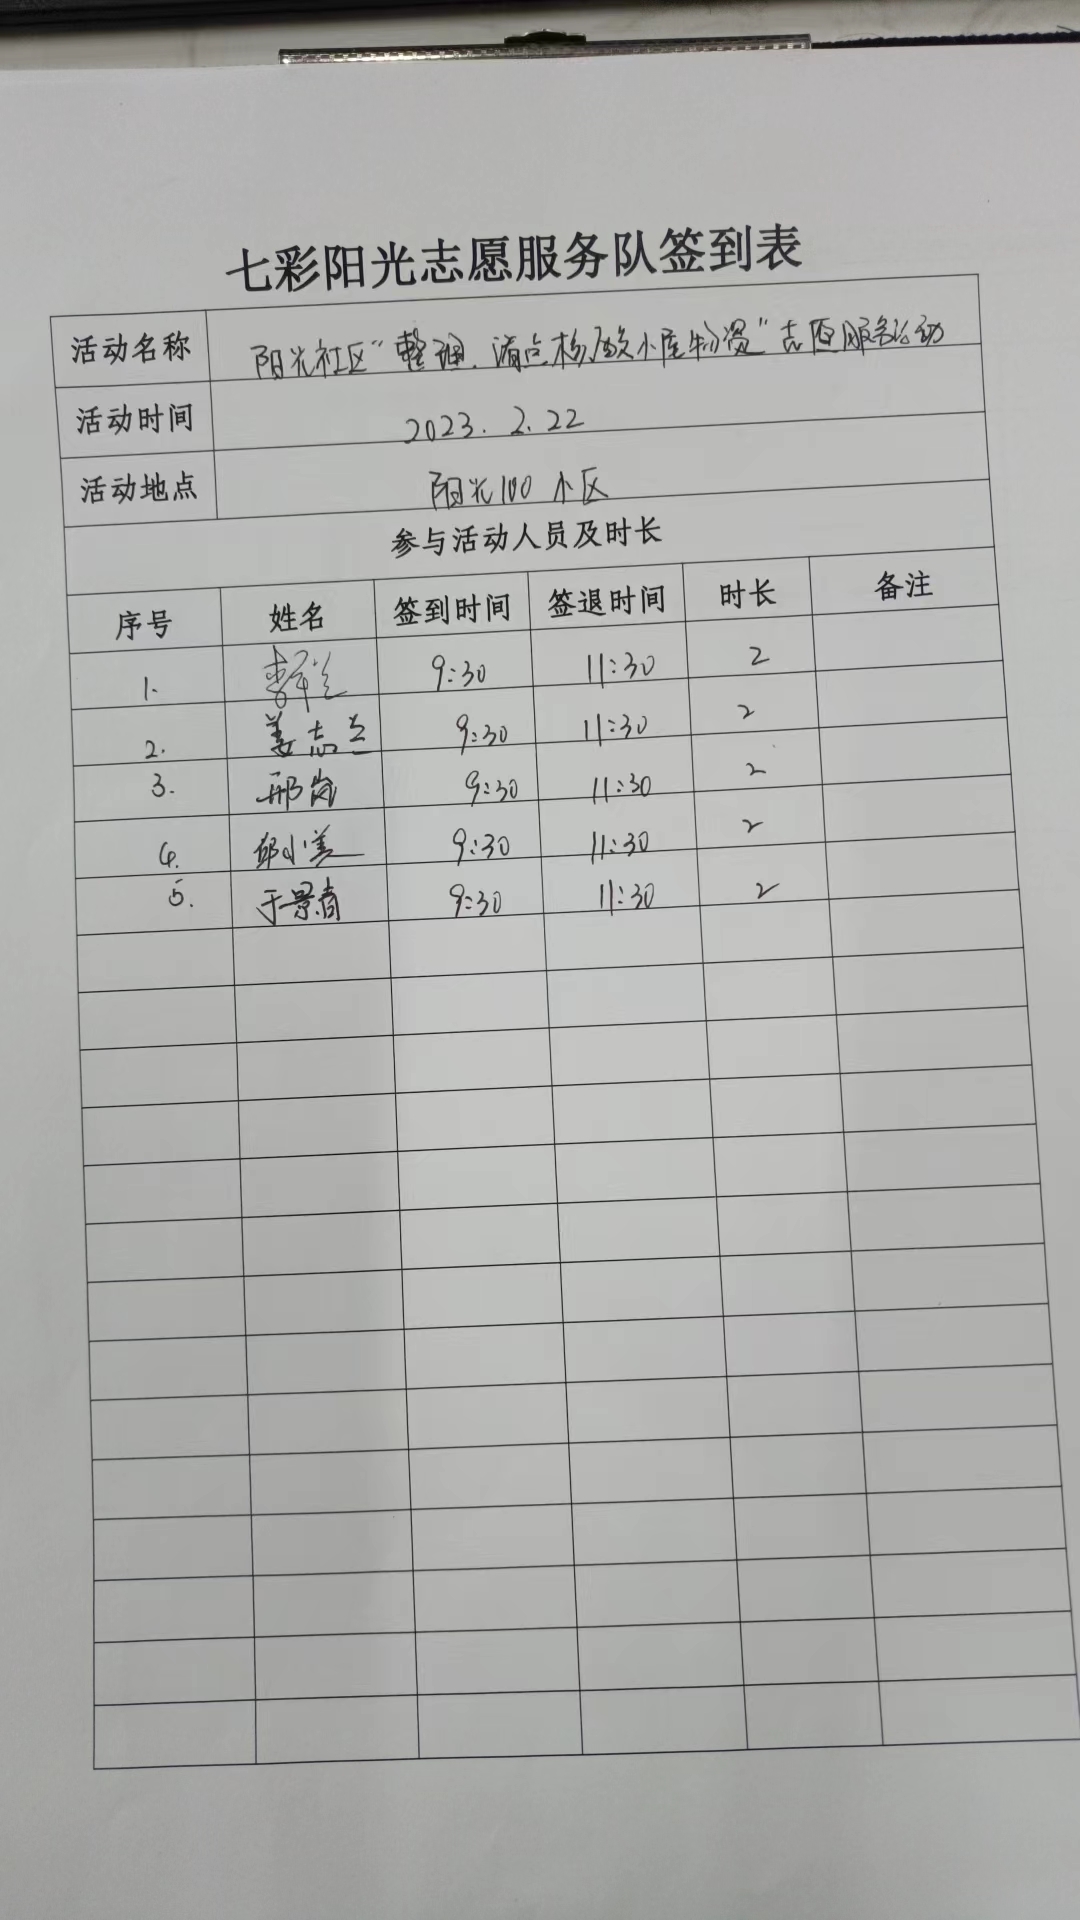 七彩阳光志愿服务队签到表
活动名称 阳光社区“整理、清点核酸小屋物资”志愿服务活动
活动时间 2023.2.22
活动地点 阳光100小区
参与活动人员及时长
序号 姓名 签到时间 签退时间 时长 备注
1. 9:30 11:30 2
2. 姜志兰 9:30 11:30 2
3. 邢岗 9:30 11:30 2
4. 邱小美 9:30 11:30 2
5. 于景春 9:30 11:30 2